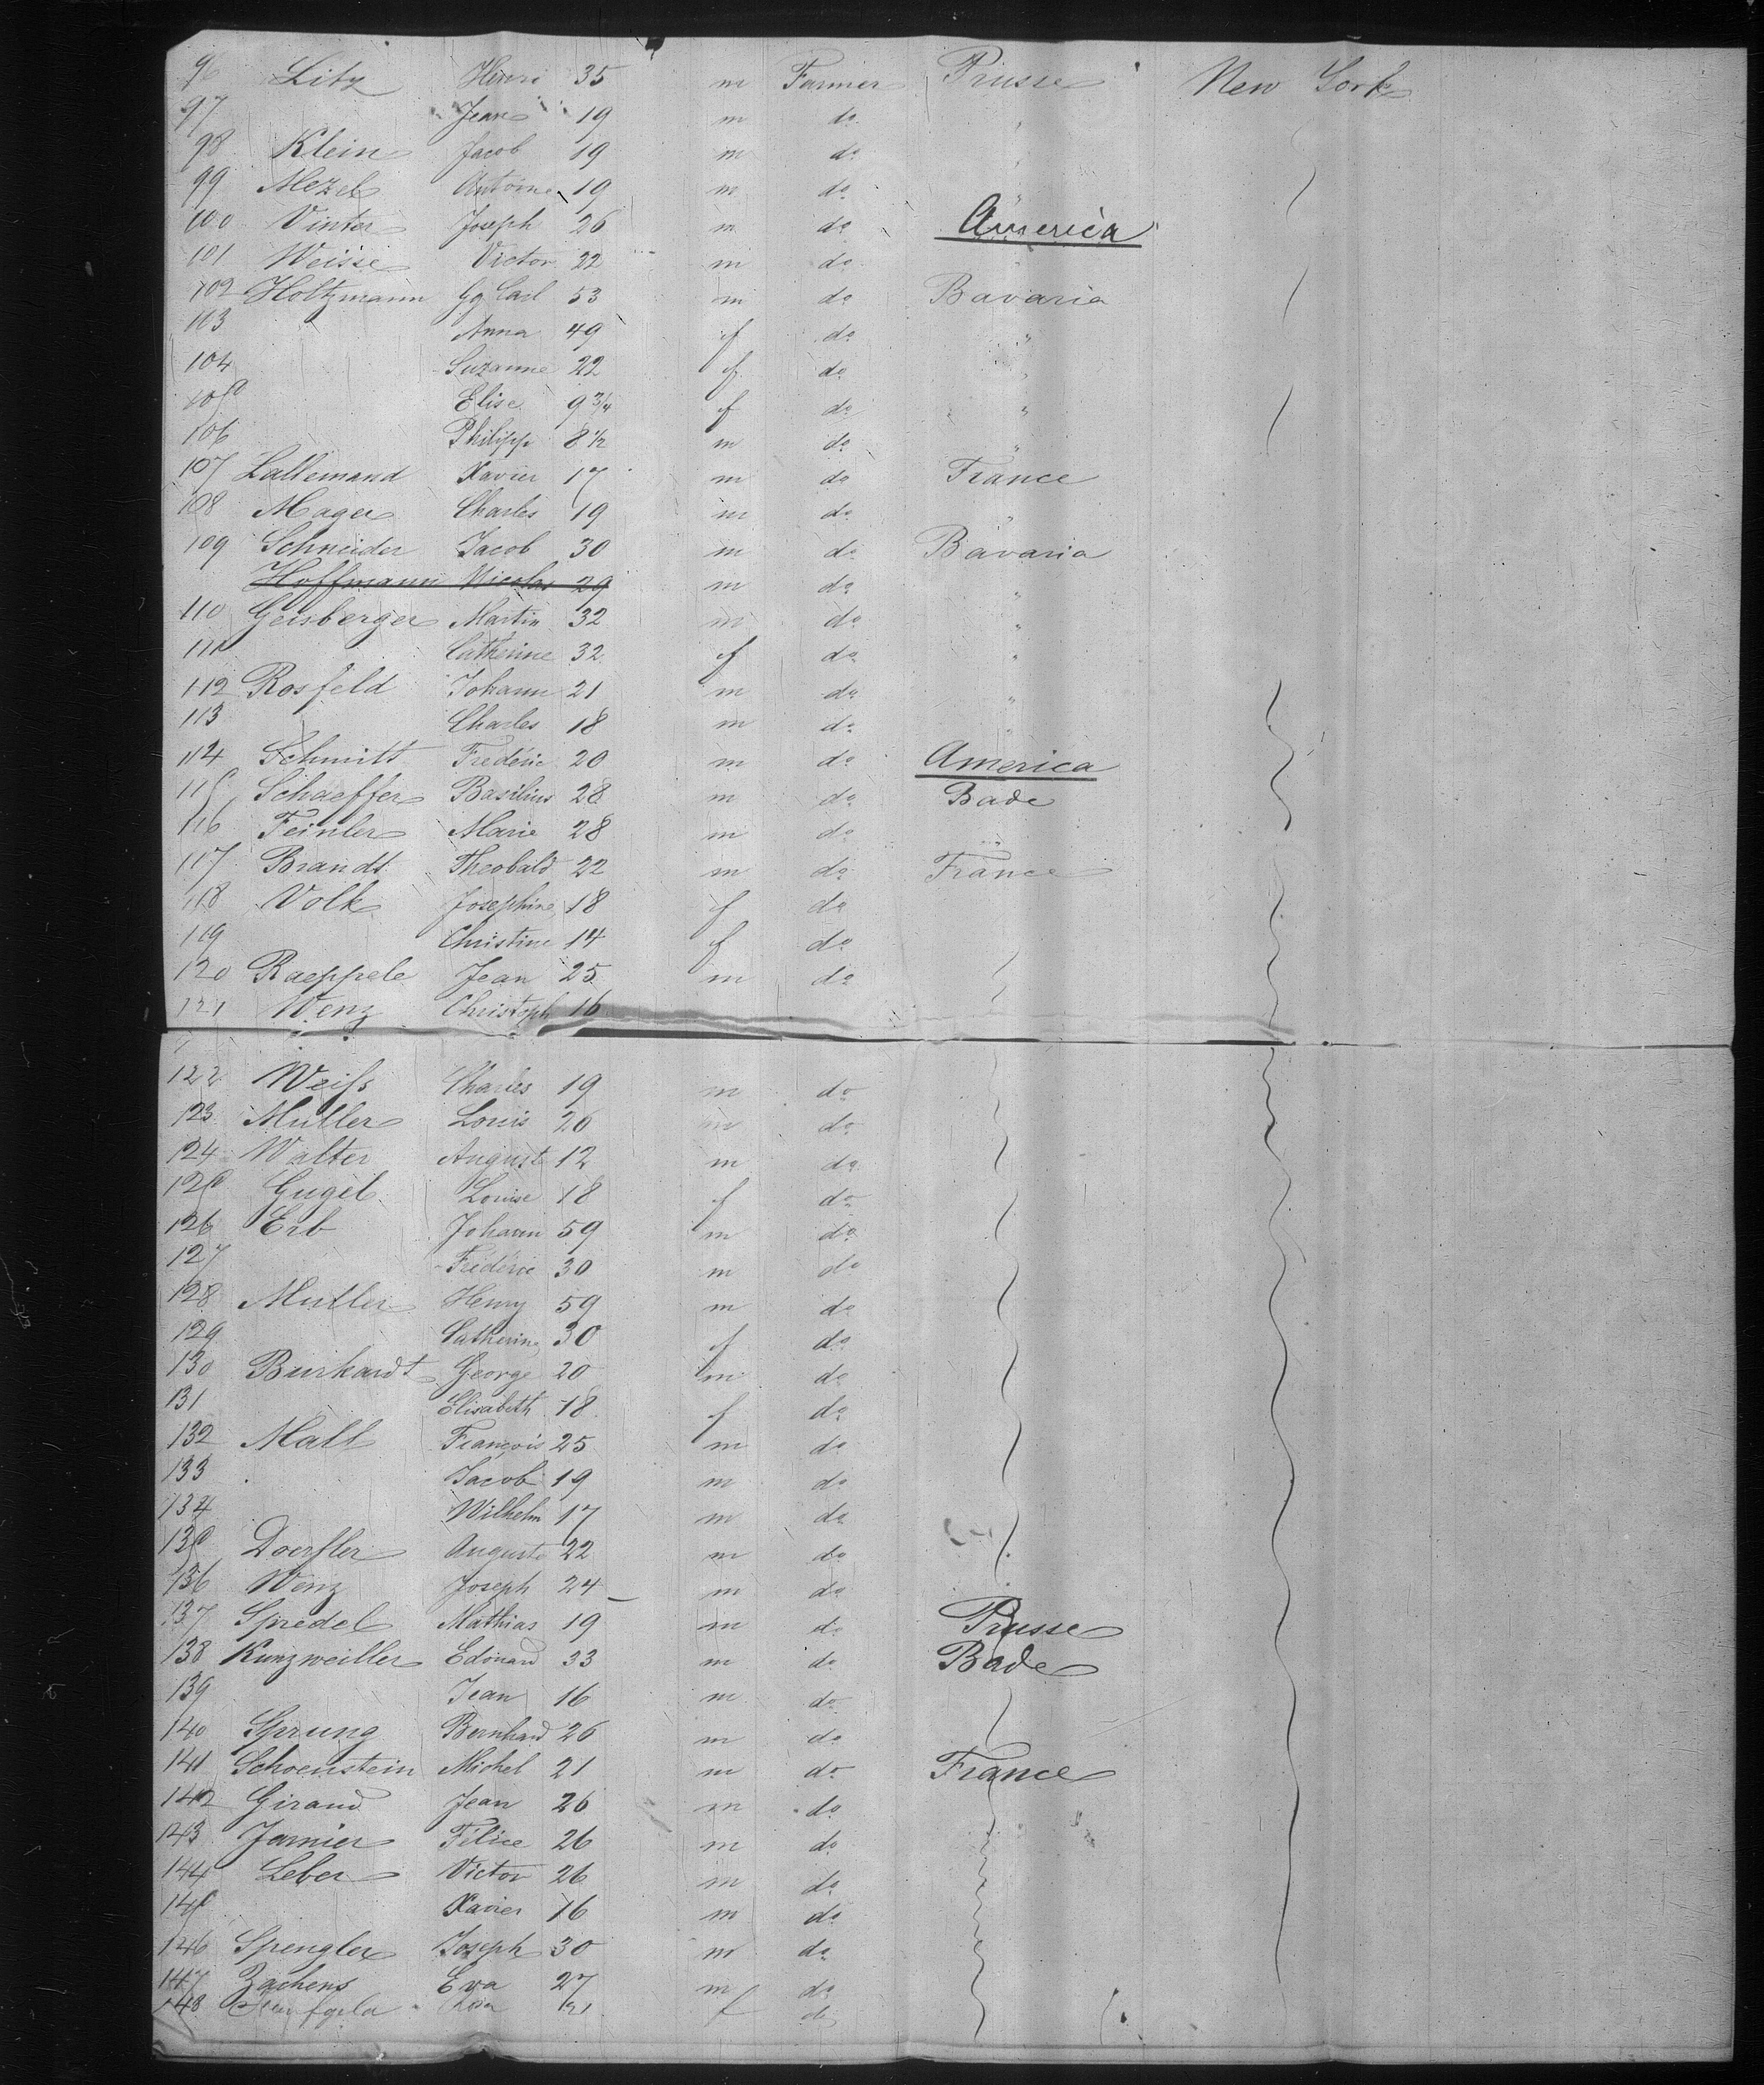 96 Litz Henri 35 m Farmer Prusse New York
97 Jean 19 m do "
98 Klein Jacob 19 m do "
99 Mezel Antoine 19 m do "
100 Vinter Joseph 26 m do America
101 Weisse Victor 22 m do "
102 Holtzmann Gg Carl 53 m do Bavaria
103 Anna 49 f do "
104 Suzanne 22 f do "
105 Elise 9 3/4 f do "
106 Philipp 8 1/2 m do "
107 Lallemand Xavier 17 m do France
108 Mager Charles 19 m do "
109 Schneider Jacob 30 m do Bavaria
Hoffmann Nicolas 29 m do "
110 Geisberger Martin 32 m do "
111 Catherine 32 f do "
112 Rosfeld Johann 21 m do "
113 Charles 18 m do "
114 Schmitt Frédéric 20 m do America
115 Schaeffer Basilius 28 m do Bade
116 Feinler Marie 28 m do "
117 Brandt Theobald 22 m do France
118 Volk Josephine 18 f do
119 Christine 14 f do
120 Raeppele Jean 25 m do
121 Wenz Christoph 16
122 Weiss Charles 19 m do
123 Muller Louis 26 m do
124 Walter August 12 m do
125 Gugel Louise 18 f do
126 Erb Johann 59 m do
127 Frédéric 30 m do
128 Mutler Henry 59 m do
129 Catherine 30 f do
130 Burkardt George 20 m do
131 Elisabeth 18 f do
132 Mall François 25 m do
133 Jacob 19 m do
134 Wilhelm 17 m do
135 Doerfler Auguste 22 m do
136 Wenz Joseph 24 m do
137 Spredel Mathias 19 m do Prusse
138 Kunzweiller Edouard 33 m do Bade
139 Jean 16 m do
140 Sprung Bernhard 26 m do
141 Schoenstein Michel 21 m do France
142 Giraud Jean 26 m do
143 Jarnier Félice 26 m do
144 Leber Victor 26 m do
145 Xavier 16 m do
146 Spengler Joseph 30 m do
147 Zachens Eva 27 m do
148 f do